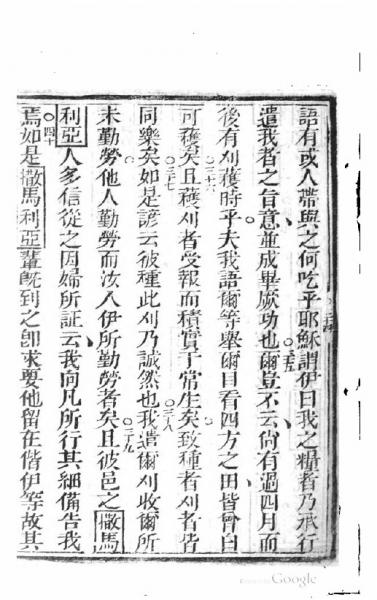 語有或人帶與之何吃乎耶穌謂伊曰我之糧者乃承行
遣我者之旨意並成畢厥功也○三五爾豈不云尚有過四月而
後有刈穫時乎夫我語爾等舉爾目看四方之田皆曾白
可穫矣○三六且穫刈者受報而積實于常生矣致種者刈者皆
同樂矣○三七如是諺云彼種此刈乃誠然也○三八我遣爾刈收爾所
未勤勞他人勤勞而汝入伊所勤勞者矣○三九且彼邑之撒馬
利亞人多信從之因婦所証云我向凡所行其細備告我
焉○四十如是撒馬利亞輩既到之即求要他留在偕伊等故其
Google